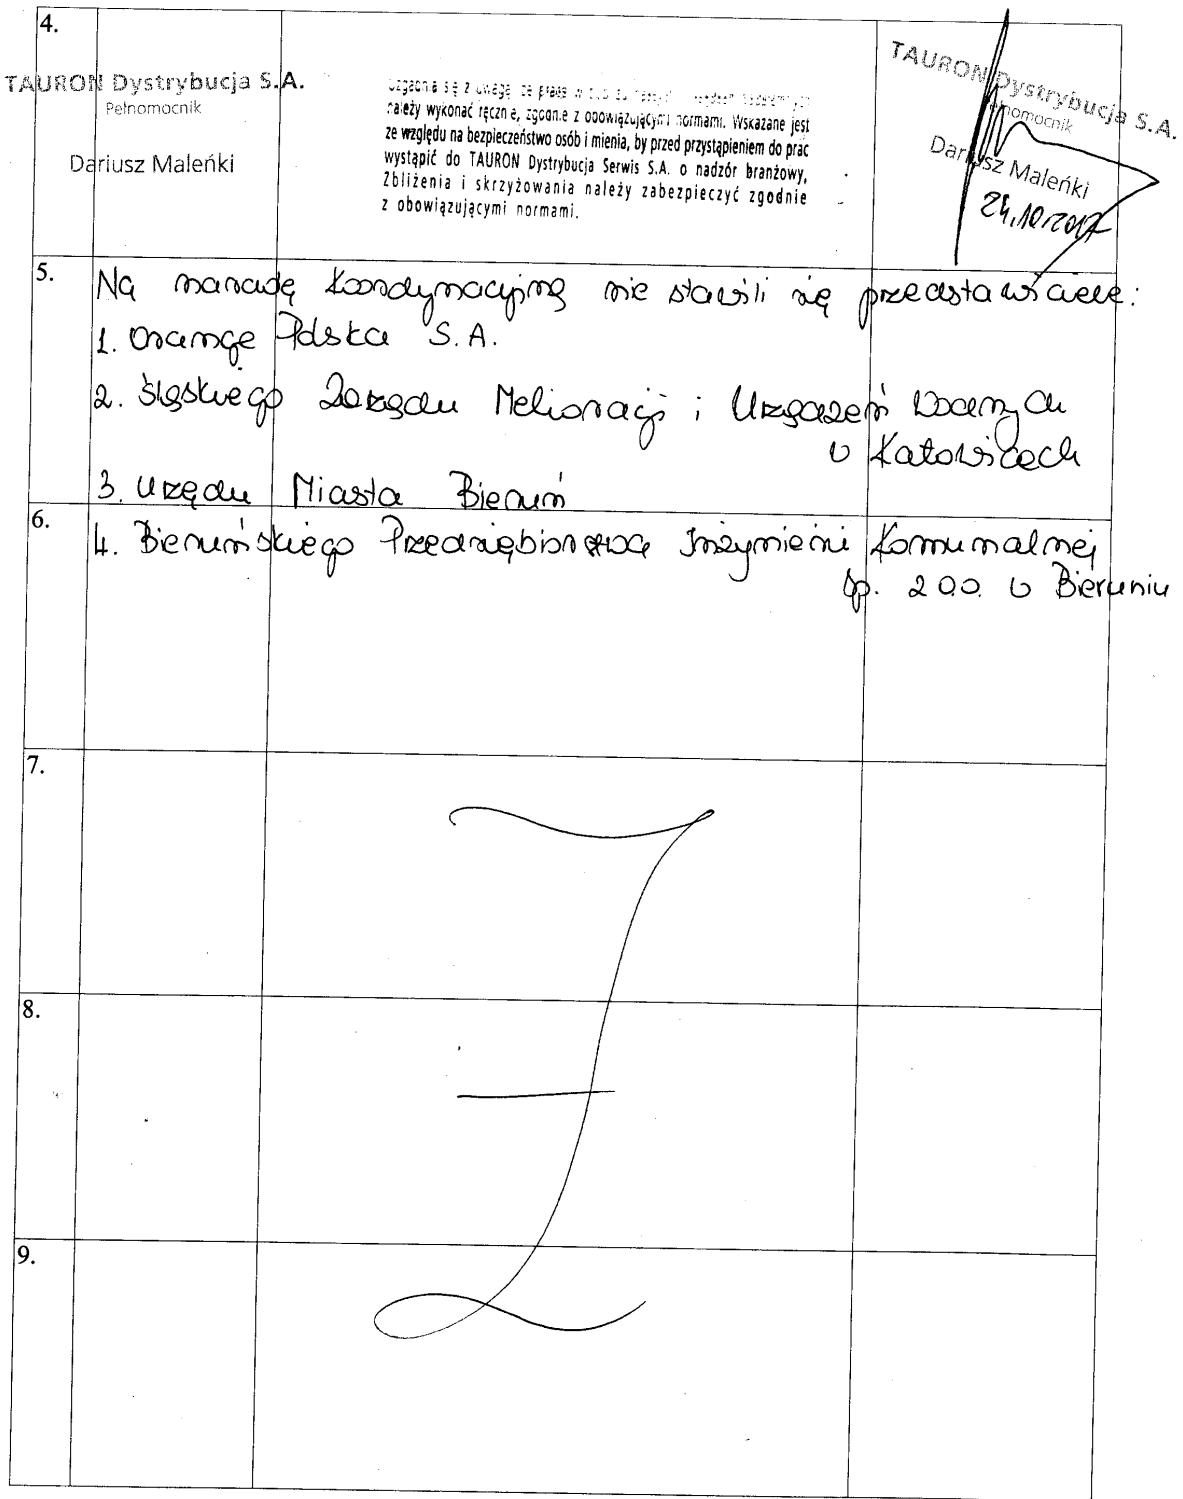 4.
TAURON Dystrybucja S.A.
Pełnomocnik
Dariusz Maleńki
Uzgadnia się z uwagą, że prace w
należy wykonać ręcznie, zgodnie z obowiązującymi normami. Wskazane jest
ze względu na bezpieczeństwo osób i mienia, by przed przystąpieniem do prac
wystąpić do TAURON Dystrybucja Serwis S.A. o nadzór branżowy.
Zbliżenia i skrzyżowania należy zabezpieczyć zgodnie
z obowiązującymi normami.
TAURON Dystrybucja S.A.
Pełnomocnik
Dariusz Maleńki
24.10.2017
5.
Na naradę koordynacyjną nie stawili się przedstawiciele:
1. Orange Polska S.A.
2. Śląskiego Zarządu Melioracji i Urządzeń Wodnych
w Katowicach
3. Urzędu Miasta Bieruń
6.
4. Bieruńskiego Przedsiębiorstwa Inżynierii Komunalnej
sp. z o.o. w Bieruniu
7.
8.
9.